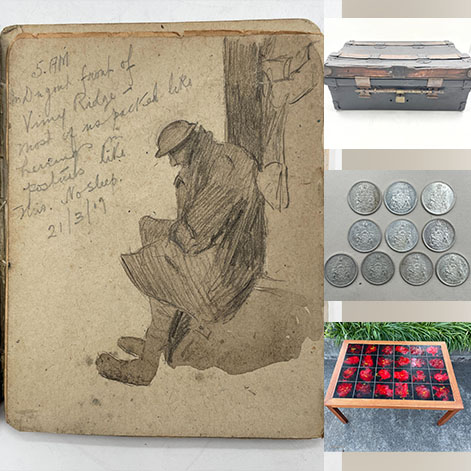 5. AM
in Dugout front of
Vimy Ridge -
most of us packed like
herrings in
postures like
this. No sleep.
21/3/17